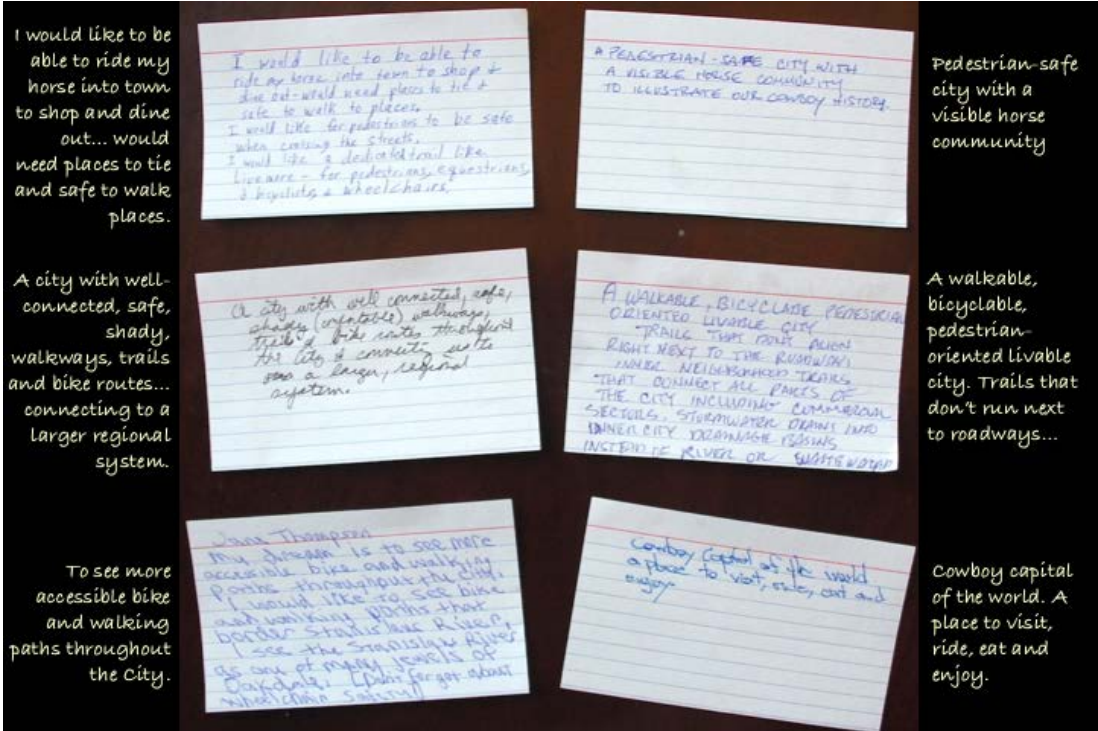 I would like to be
able to ride my
horse into town
to shop and dine
out... would
need places to tie
and safe to walk
places.
I would like to be able to
ride my horse into town to shop &
dine out-would need places to tie &
safe to walk to places.
I would like for pedestrians to be safe
when crossing the streets.
I would like a dedicated trail like
Livermore - for pedestrians, equestrians,
& bicyclists & wheelchairs.
A PEDESTRIAN-SAFE CITY WITH
A VISIBLE HORSE COMMUNITY
TO ILLUSTRATE OUR COWBOY HISTORY.
Pedestrian-safe
city with a
visible horse
community
A city with well-
connected, safe,
shady,
walkways, trails
and bike routes...
connecting to a
larger regional
system.
A city with well connected, safe,
shady walkways,
trails & bike routes throughout
the city & connecting
a larger, regional
system.
A WALKABLE, BICYCLABLE PEDESTRIAN
ORIENTED LIVABLE CITY
TRAILS THAT DON'T ALIGN
RIGHT NEXT TO THE ROADWAY
INNER NEIGHBORHOOD TRAILS
THAT CONNECT ALL PARTS OF
THE CITY INCLUDING COMMERCIAL
SECTORS. STORMWATER DRAINS INTO
INNER CITY DRAINAGE BASINS
INSTEAD OF RIVER OR
A walkable,
bicyclable,
pedestrian-
oriented livable
city. Trails that
don't run next
to roadways...
To see more
accessible bike
and walking
paths throughout
the City.
Jane Thompson
My dream is to see more
accessible bike and walking
paths throughout the city.
I would like to see bike
and walking paths that
border Stanislaus River,
I see the Stanislaus River
as one of many jewels of
Oakdale. (Don't forget about
wheelchair safety)
Cowboy Capital of the world
a place to visit, ride, eat and
enjoy.
Cowboy capital
of the world. A
place to visit,
ride, eat and
enjoy.